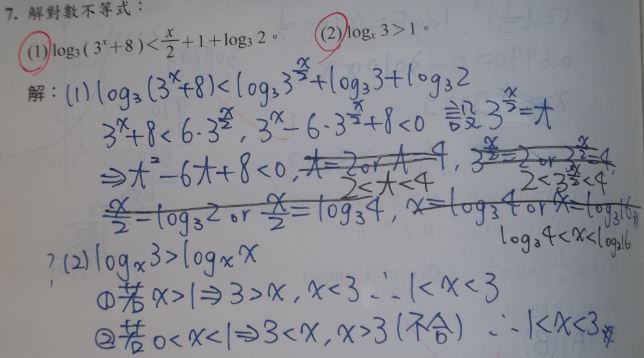 7. 解對數不等式：
(1) log₃(3ˣ+8)<x/2+1+log₃2。 (2) logₓ3>1。
解：(1) log₃(3ˣ+8)<log₃3^(x/2)+log₃3+log₃2
3ˣ+8<6·3^(x/2), 3ˣ-6·3^(x/2)+8<0 設3^(x/2)=t
⇒t²-6t+8<0, t=2 or t=4, 3^(x/2)=2 or 3^(x/2)=4,
2<t<4 2<3^(x/2)<4
x/2=log₃2 or x/2=log₃4, x=log₃4 or x=log₃16
log₃4<x<log₃16
?(2) logₓ3>logₓx
①若x>1⇒3>x, x<3 ∴1<x<3
②若0<x<1⇒3<x, x>3(不合) ∴1<x<3